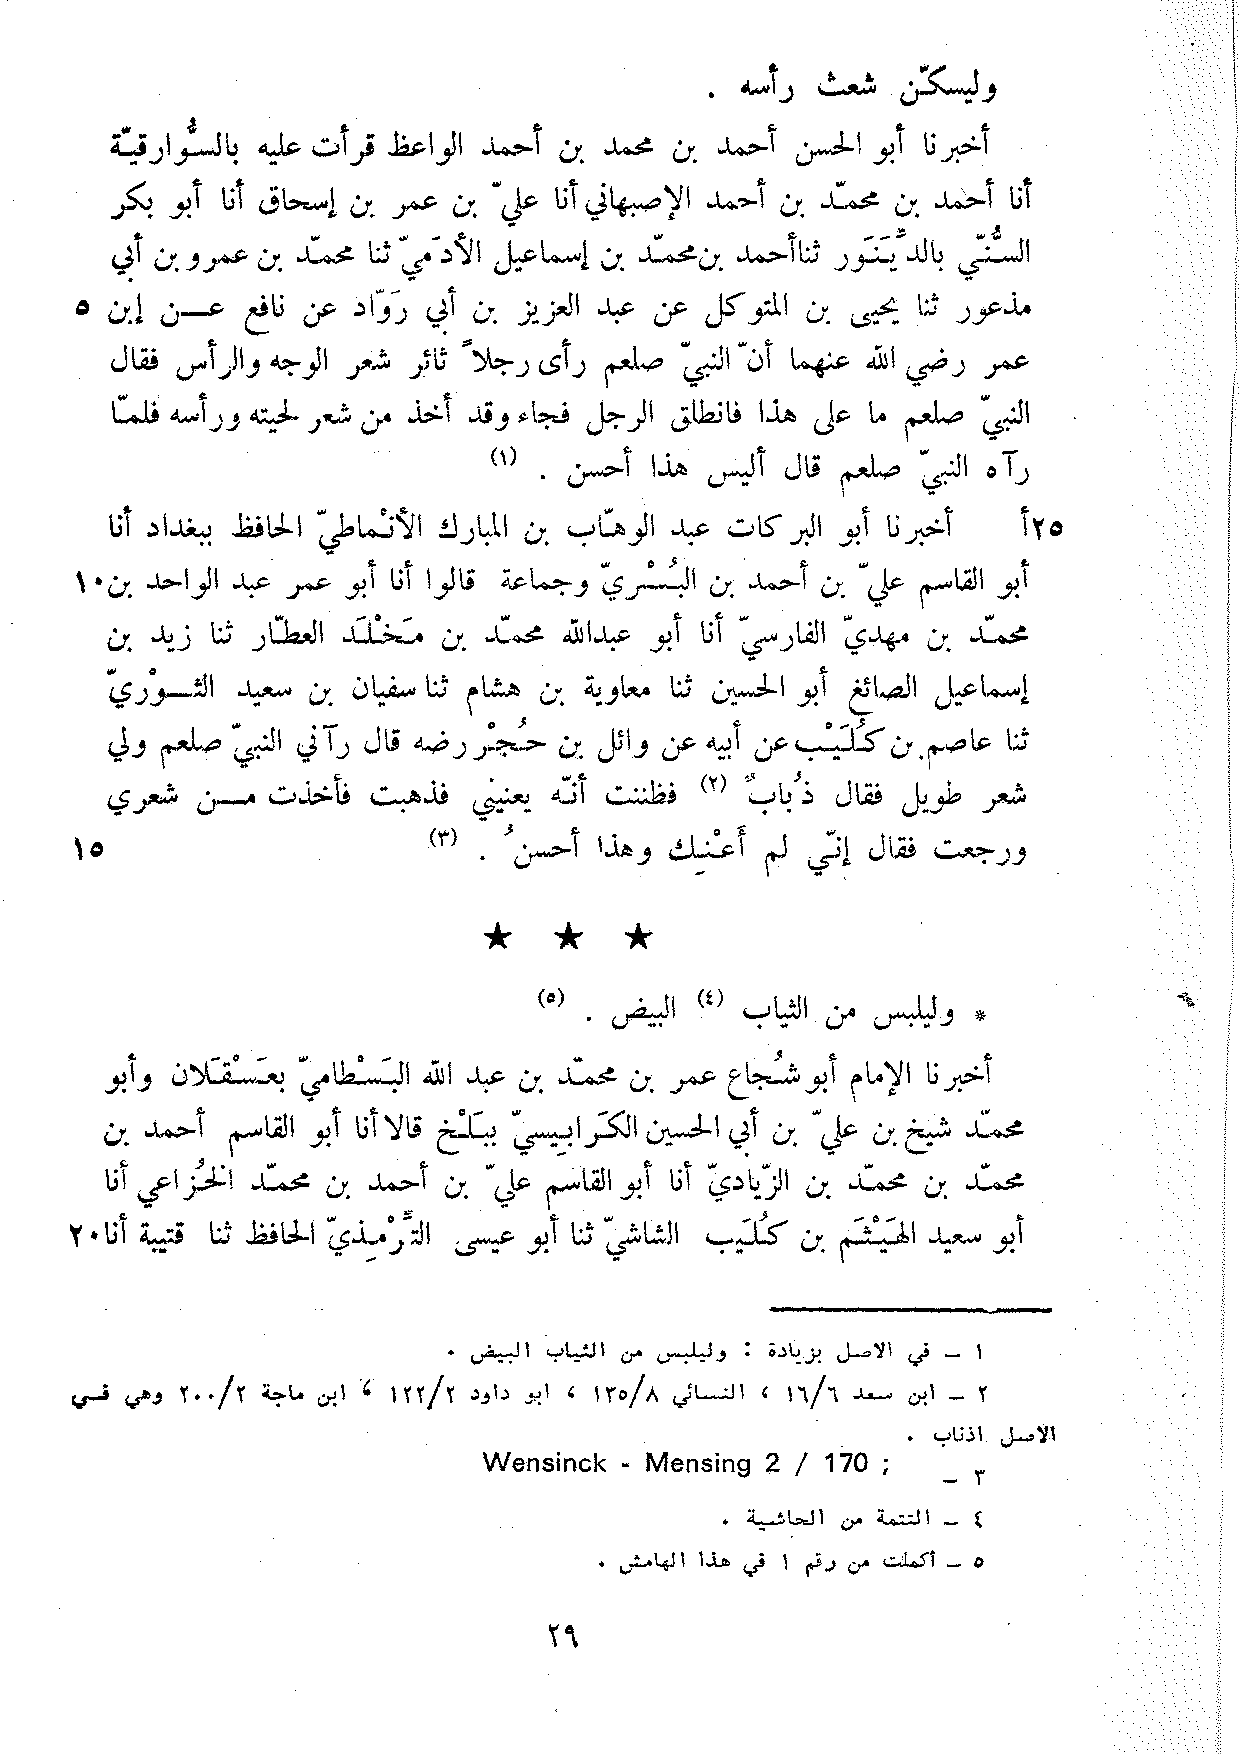 وليسكّن شعث رأسه .
أخبرنا أبو الحسن أحمد بن محمد بن أحمد الواعظ قرأت عليه بالسُّوارقيّة
أنا أحمد بن محمّد بن أحمد الإصبهاني أنا عليّ بن عمر بن إسحاق أنا أبو بكر
السُّنّي بالدِّيْنَوَر ثناأحمد بن محمّد بن إسماعيل الأدَميّ ثنا محمّد بن عمرو بن أبي
مذعور ثنا يحيى بن المتوكل عن عبد العزيز بن أبي رَوّاد عن نافع عـن إبن ٥
عمر رضي الله عنهما أنّ النبيّ صلعم رأى رجلاً ثائر شعر الوجه والرأس فقال
النبيّ صلعم ما على هذا فانطلق الرجل فجاء وقد أخذ من شعر لحيته ورأسه فلمّا
رآه النبيّ صلعم قال أليس هذا أحسن . (١)
٢٥أ أخبرنا أبو البركات عبد الوهّاب بن المبارك الأنْماطيّ الحافظ ببغداد أنا
أبو القاسم عليّ بن أحمد بن البُسْريّ وجماعة قالوا أنا أبو عمر عبد الواحد بن ١٠
محمّد بن مهديّ الفارسيّ أنا أبو عبدالله محمّد بن مَخْلَد العطّار ثنا زيد بن
إسماعيل الصائغ أبو الحسين ثنا معاوية بن هشام ثنا سفيان بن سعيد الثـوْريّ
ثنا عاصم بن كُلَيْب عن أبيه عن وائل بن حُجْر رضه قال رآني النبيّ صلعم ولي
شعر طويل فقال ذُبابٌ (٢) فظننت أنّه يعنيني فذهبت فأخذت مـن شعري
ورجعت فقال إنّي لم أَعْنِك وهذا أحسنُ . (٣) ١٥
★ ★ ★
* وليلبس من الثياب (٤) البيض . (٥)
أخبرنا الإمام أبو شُجاع عمر بن محمّد بن عبد الله البَسْطاميّ بعَسْقَلان وأبو
محمّد شيخ بن عليّ بن أبي الحسين الكَرابِيسيّ ببَلْخ قالا أنا أبو القاسم أحمد بن
محمّد بن محمّد بن الزّياديّ أنا أبو القاسم عليّ بن أحمد بن محمّد الخُزاعي أنا
أبو سعيد الهَيْثَم بن كُلَيب الشاشيّ ثنا أبو عيسى التِّرْمِذيّ الحافظ ثنا قتيبة أنا ٢٠
١ - في الاصل بزيادة : وليلبس من الثياب البيض .
٢ - ابن سعد ١٦/٦ ، النسائي ١٣٥/٨ ، ابو داود ١٢٢/٢ ، ابن ماجة ٢٠٠/٢ وهي فـي
الاصل اذناب .
٣ - Wensinck - Mensing 2 / 170 ;
٤ - التتمة من الحاشية .
٥ - أكملت من رقم ١ في هذا الهامش .
٢٩